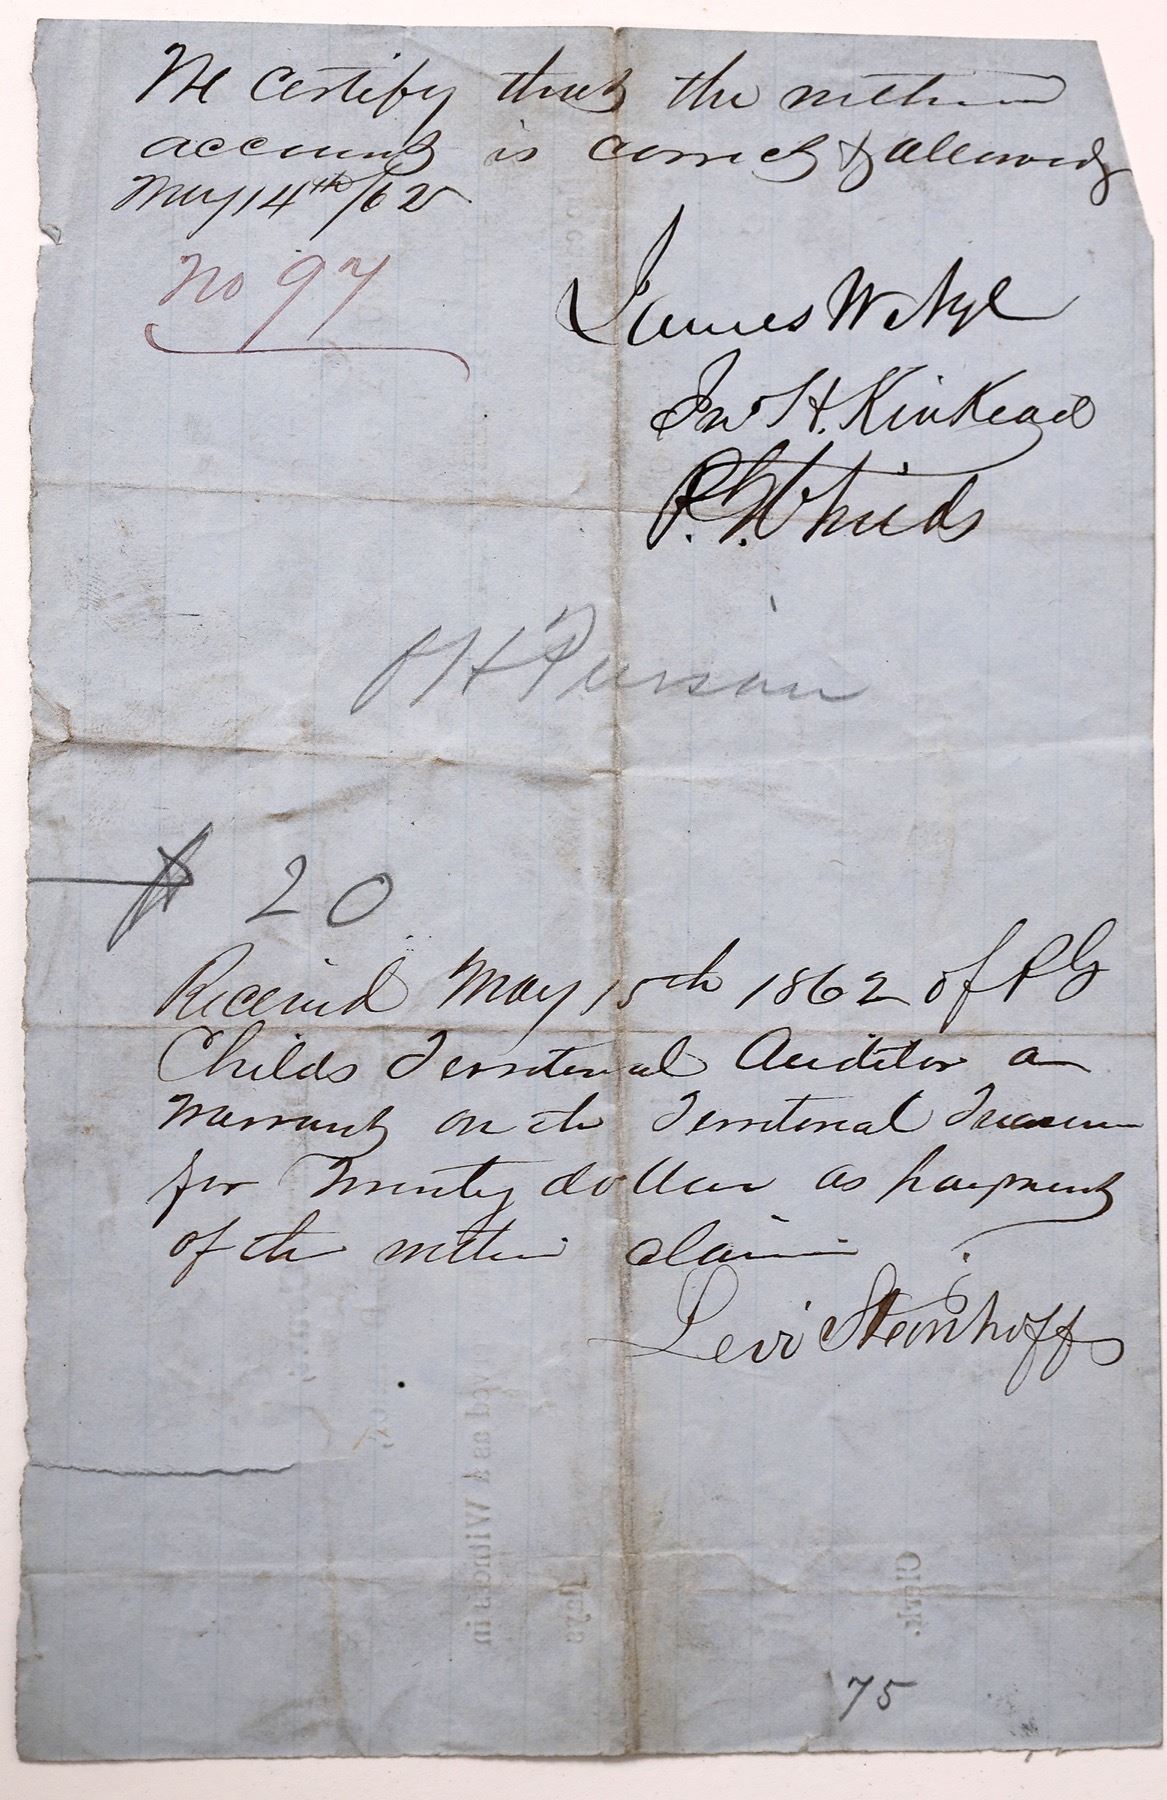 We certify that the within
account is correct & allowed
May 14th/62
No 97
James W. Nye
Jno H. Kinkead
P. G. Childs
H Pierson
$ 20
Received May 15th 1862 of P G
Childs Territorial Auditor a
Warrant on the Territorial Treasurer
for Twenty dollars as payment
of the within claim.
Levi Steinhoff
ved as a Witness in
Days
Clerk.
75